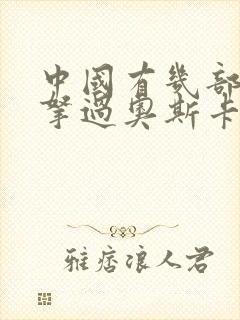 中國有幾部
拏過奧斯卡
雅痞浪人君